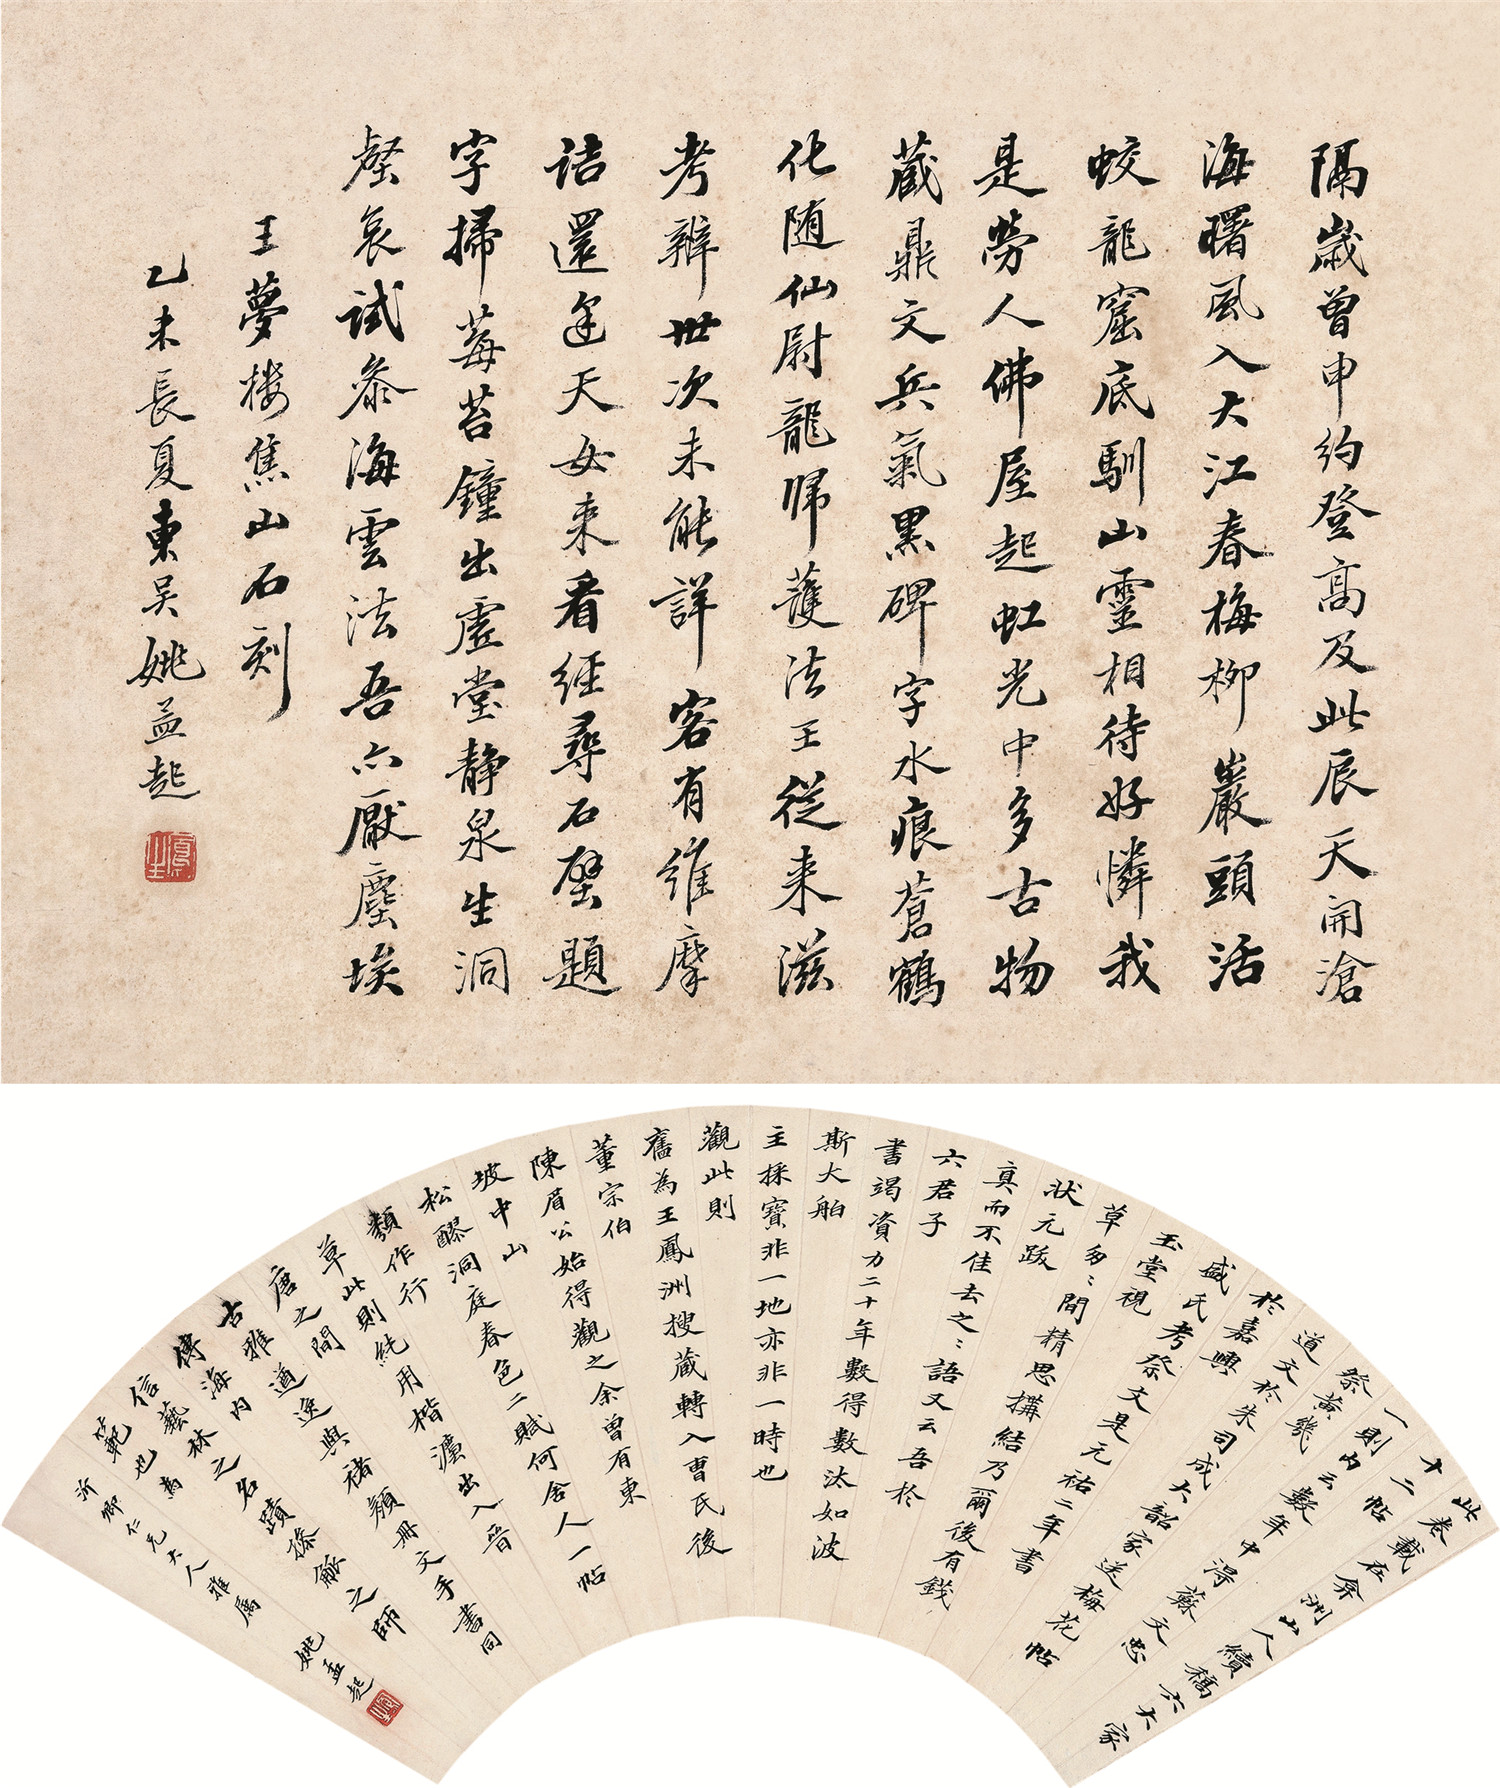 隔歲曾申約登高及此辰天開滄
海曙風入大江春梅柳巖頭活
蛟龍窟底馴山靈相待好憐我
是勞人佛屋起虹光中多古物
藏鼎文兵氣黑碑字水痕蒼鶴
化随仙尉龍歸護法王從来滋
考辨世次未能詳客有維摩
詰還逢天女来看經尋石壁題
字掃莓苔鐘出虛堂静泉生洞
壑哀試叅海雲法吾亦厭塵埃
王夢樓焦山石刻
乙未長夏東吳姚孟起
此卷載在弇洲山人續稿六大家
十二帖
一則內云數年中得蘇文忠
祭黃幾
道文於朱司成大韶家送梅花帖
於嘉興
盛氏考祭文是元祐二年書
玉堂視
草匆〻間精思搆結乃爾後有錢
狀元跋
真而不佳去之〻語又云吾於
六君子
書竭資力二十年數得數汰如波
斯大舶
主採寶非一地亦非一時也
觀此則
舊為王鳳洲搜藏轉入曹氏後
董宗伯
陳眉公始得觀之余曾有東
坡中山
松醪洞庭春色二賦何舍人一帖
類作行
草此則純用楷灋出入晉
唐之間
遒逸與褚顏冊文手書同
古雅
海內
傳
藝林之名蹟
之師
信為
範也
沂卿仁兄大人雅屬
姚孟起